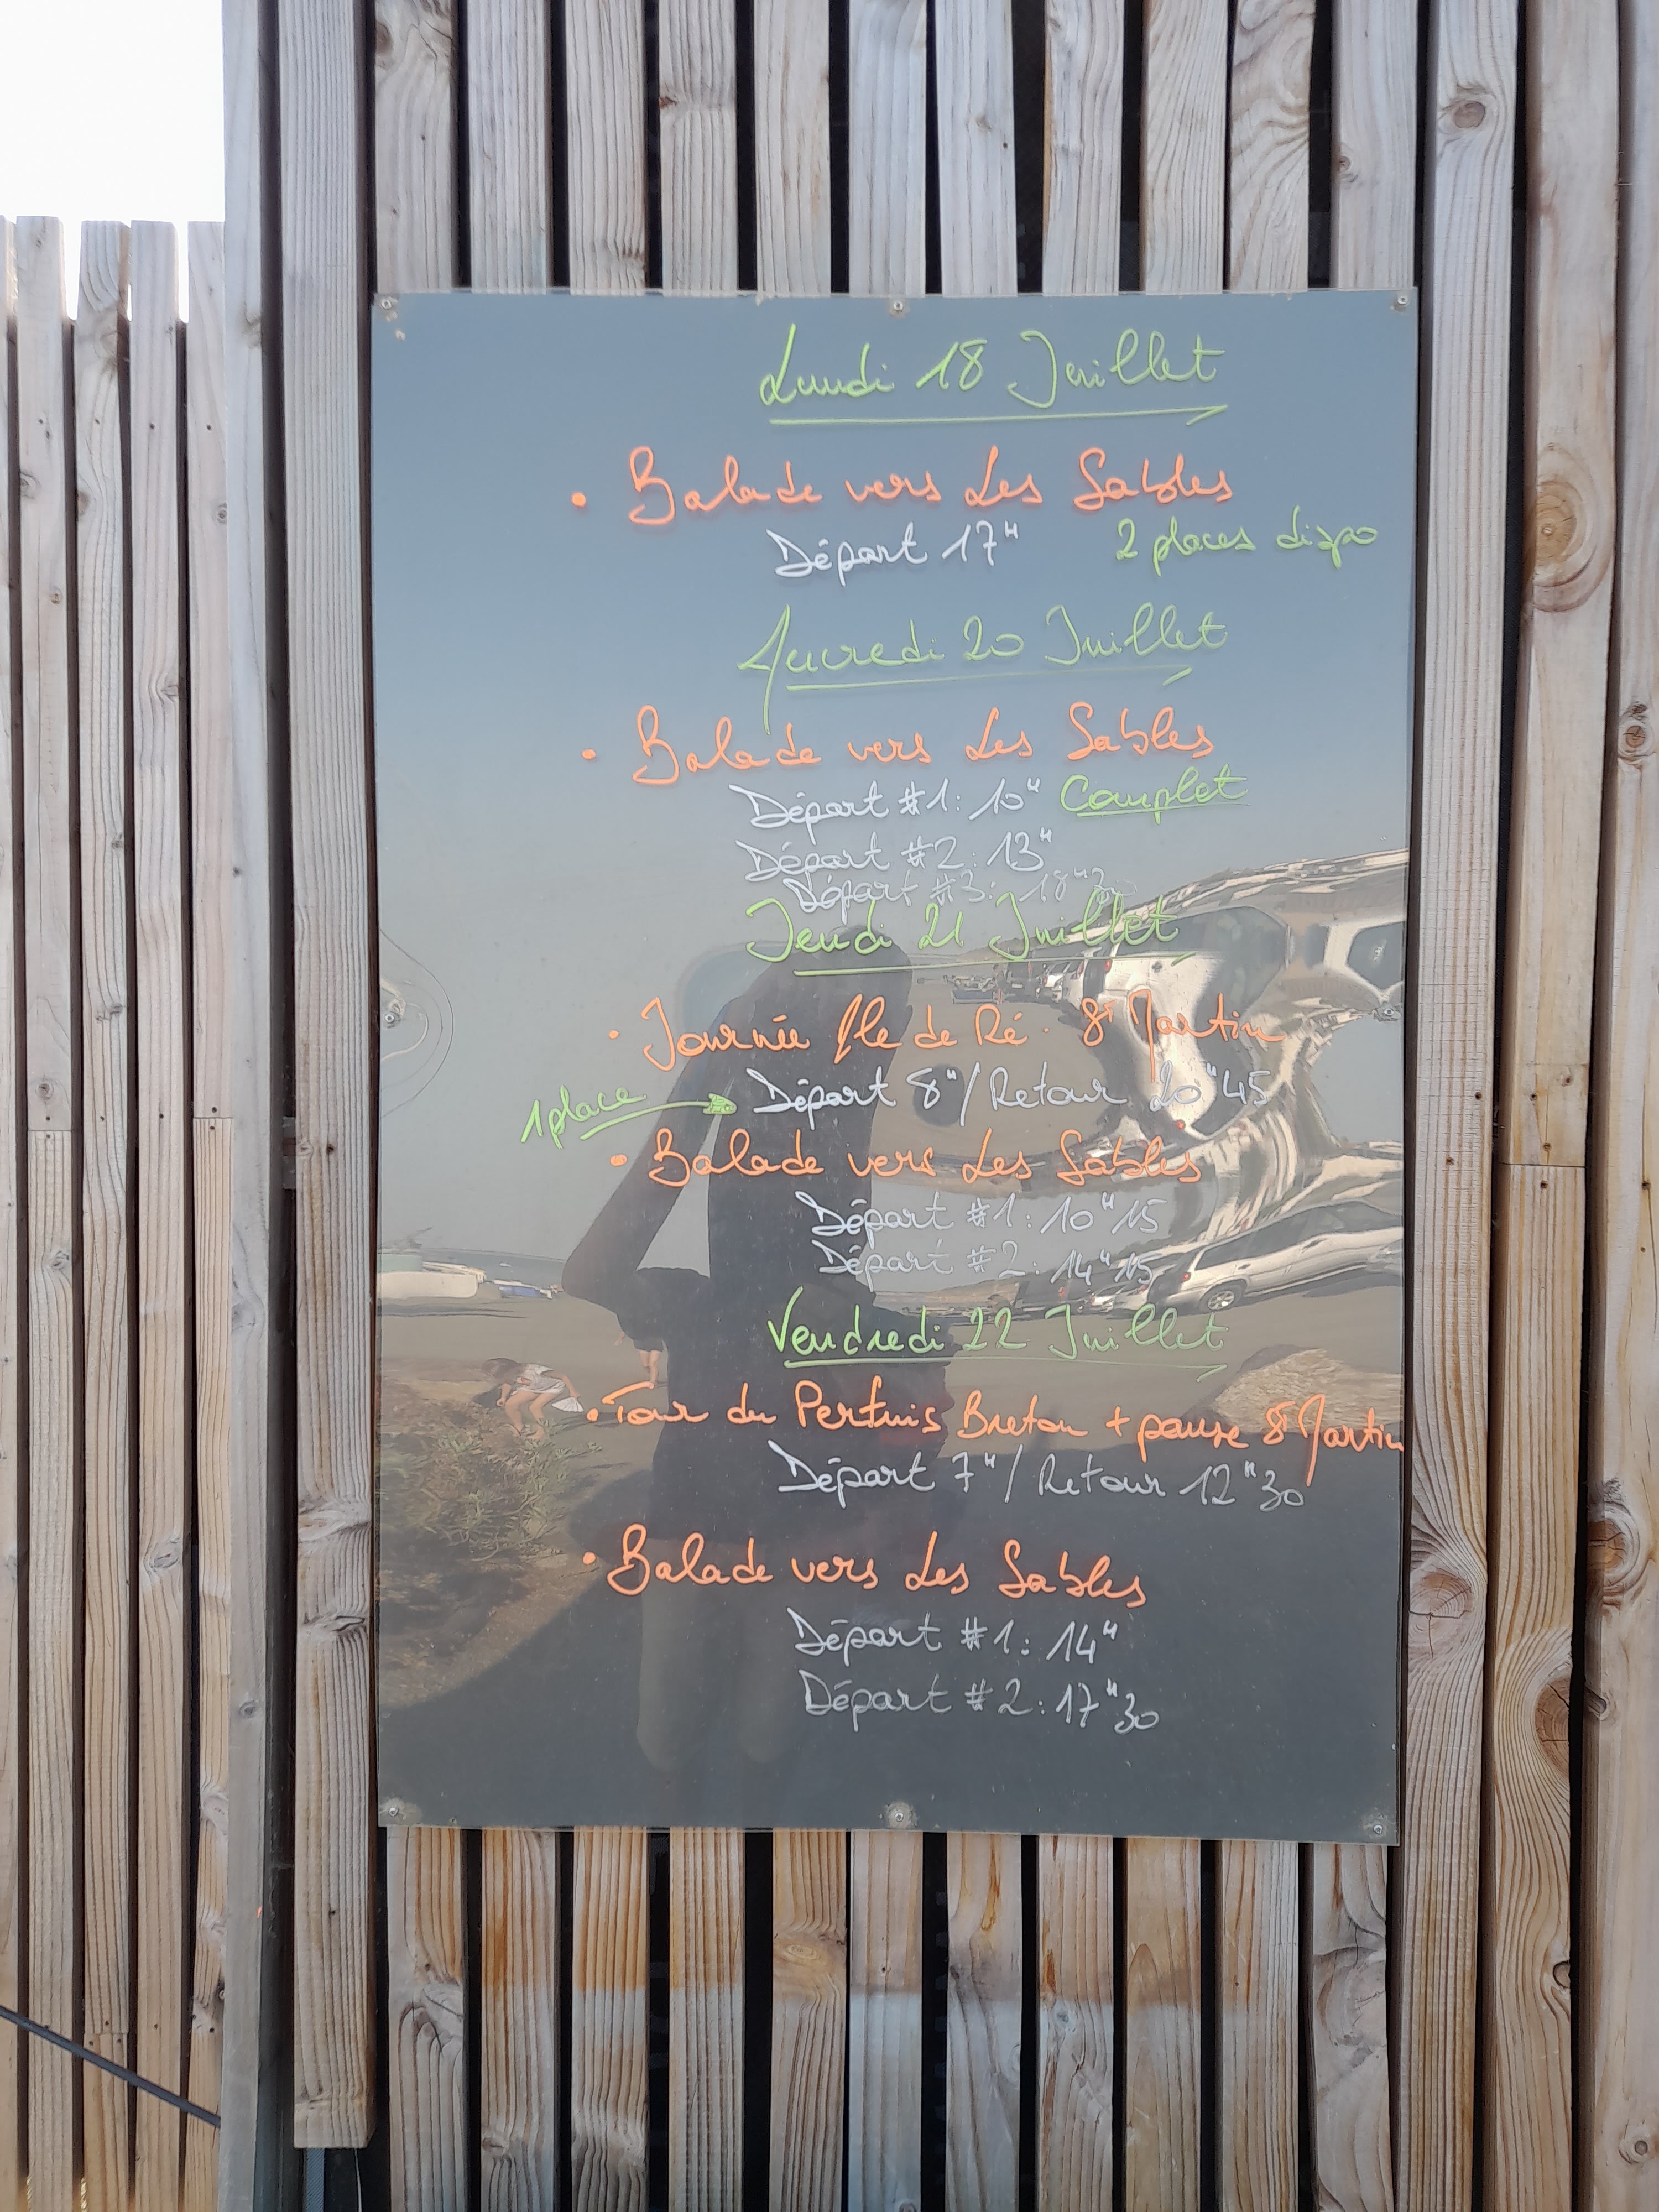 Lundi 18 Juillet
• Balade vers Les Sables
Départ 17H 2 places dispo
Mercredi 20 Juillet
• Balade vers Les Sables
Départ #1: 10H Complet
Départ #2: 13H
Départ #3: 18H30
Jeudi 21 Juillet
• Journée Ile de Ré. St Martin
1 place → Départ 8H / Retour 20H45
• Balade vers Les Sables
Départ #1: 10H15
Départ #2: 14H15
Vendredi 22 Juillet
• Tour du Pertuis Breton + pause St Martin
Départ 7H / Retour 12H30
• Balade vers Les Sables
Départ #1: 14H
Départ #2: 17H30